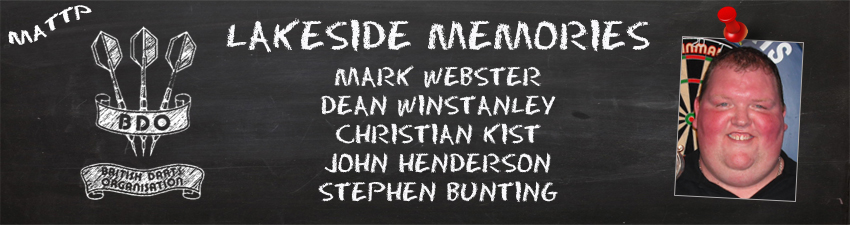 MATTP
LAKESIDE MEMORIES
MARK WEBSTER
DEAN WINSTANLEY
CHRISTIAN KIST
JOHN HENDERSON
STEPHEN BUNTING
BDO
BRITISH DARTS
ORGANISATION